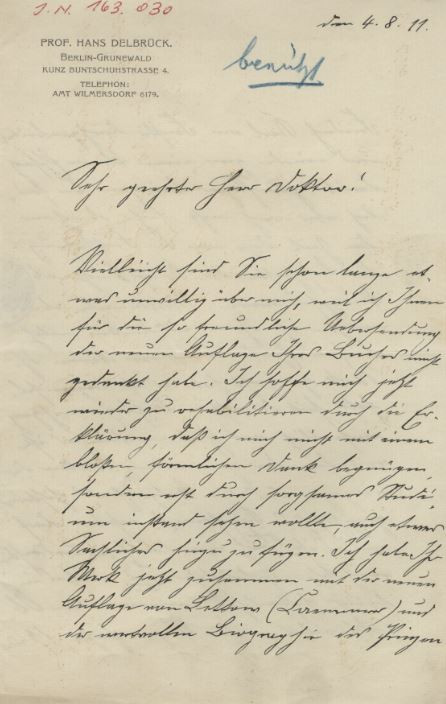 J. N. 163.030
den 4. 8. 11.
PROF. HANS DELBRÜCK.
BERLIN-GRUNEWALD
KUNZ BUNTSCHUHSTRASSE 4.
TELEPHON:
AMT WILMERSDORF 6179.
benützt
Sehr geehrter Herr Doktor!
Vielleicht sind Sie schon lange et-
was unwillig über mich, weil ich Ihnen
für die so freundliche Uebersendung
der neuen Auflage Ihres Buches nicht
gedankt habe. Ich hoffe mich jetzt
wieder zu rehabilitieren durch die Er-
klärung, daß ich mich nicht mit einem
bloßen, förmlichen Dank begnügen,
sondern erst durch sorgsames Studi-
um instand setzen wollte, auch etwas
Sachliches hinzuzufügen. Ich habe Ihr
Werk jetzt zusammen mit der neuen
Auflage von Lettow (Caemmerer) und
der wertvollen Biographie des Prinzen